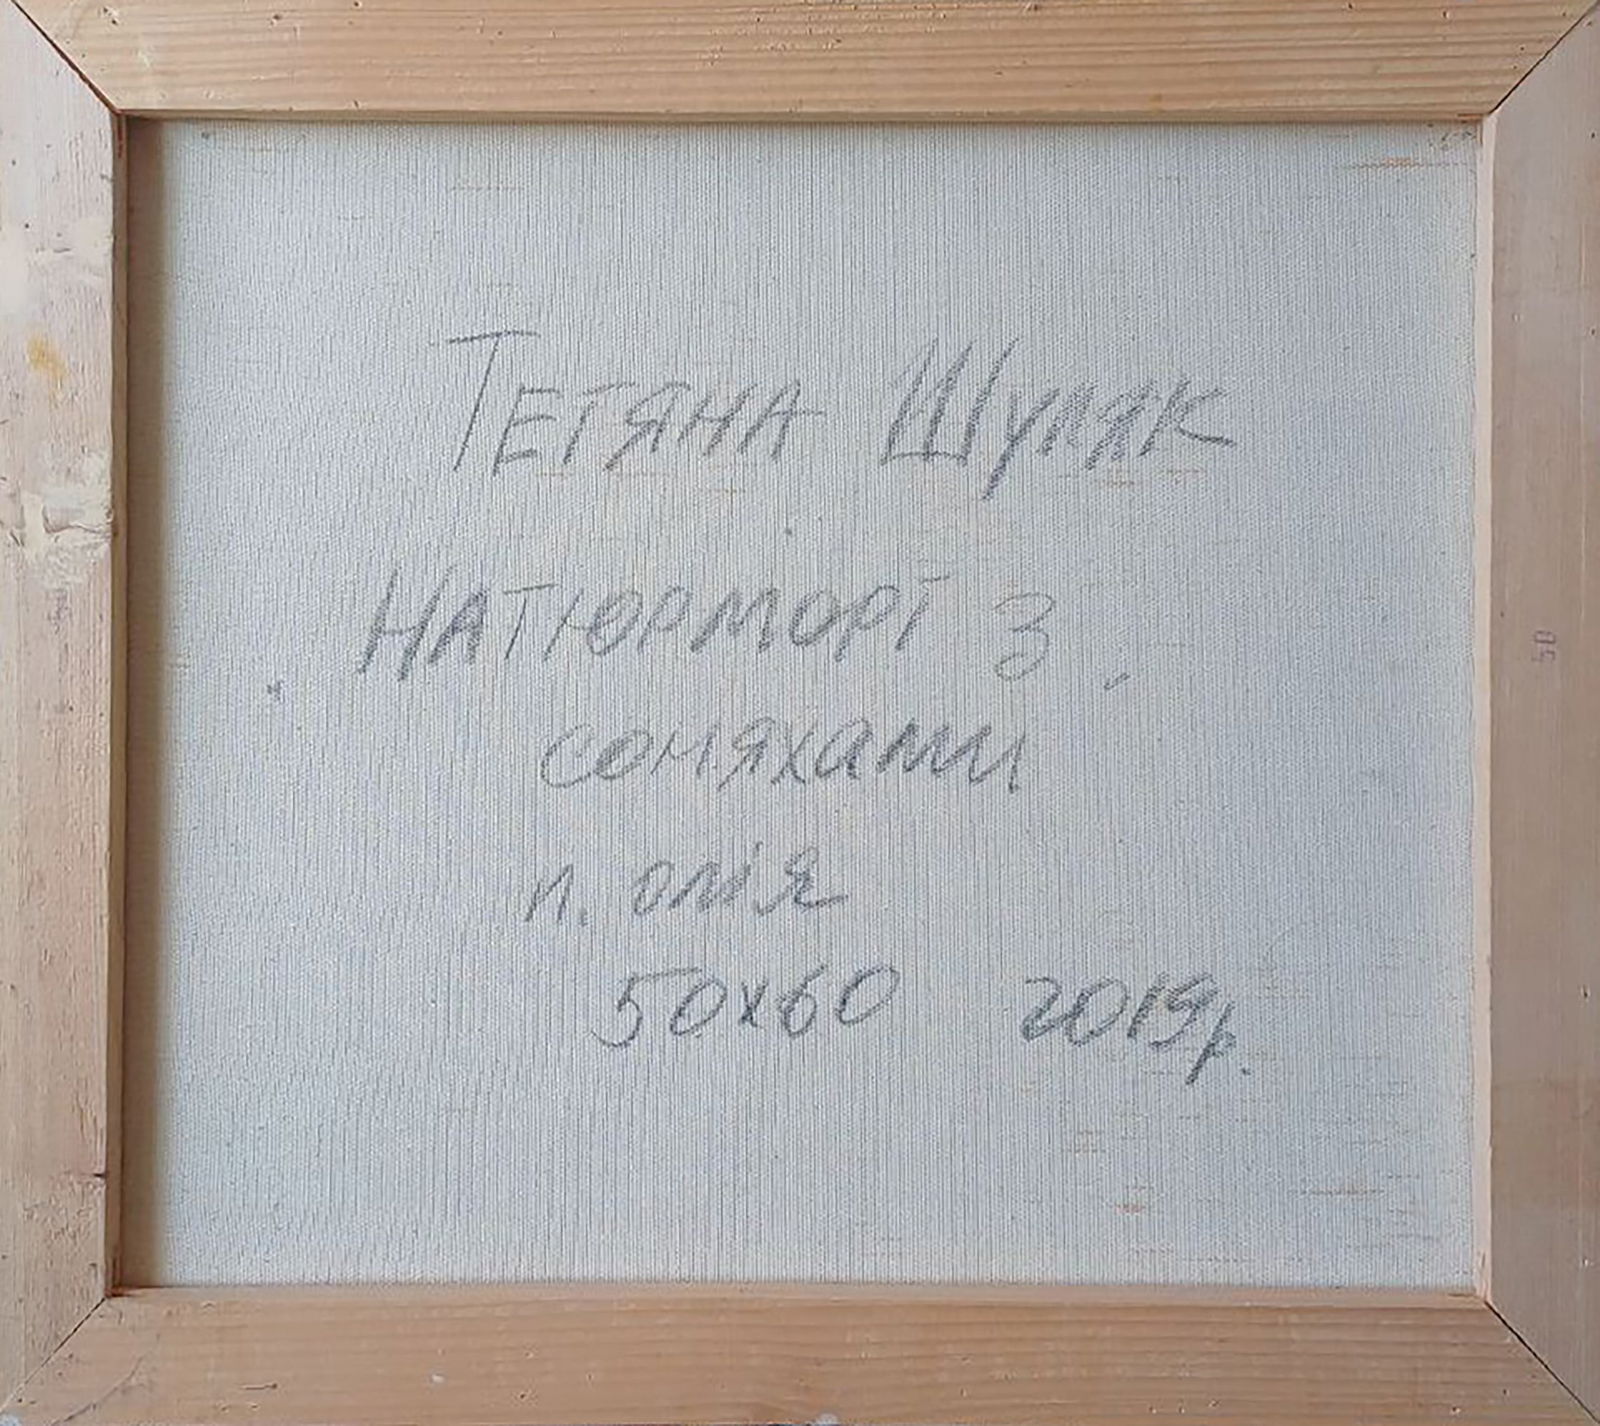 Тетяна Шуляк
Натюрморт з
соняхами
п. олія
50х60 2019р.
50